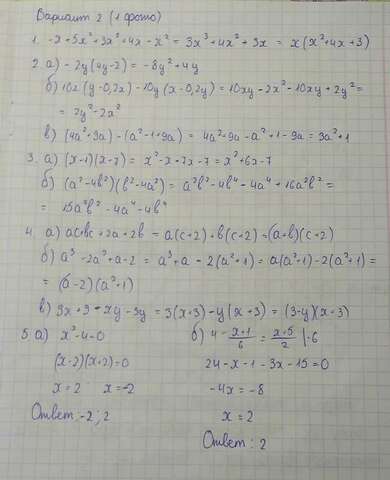 Вариант 2 (1 фото)
1. -x + 5x² + 3x³ + 4x - x² = 3x³ + 4x² + 3x = x(x² + 4x + 3)
2. а) -2y(4y-2) = -8y² + 4y
б) 10x(y-0,2x) - 10y(x-0,2y) = 10xy - 2x² - 10xy + 2y² =
= 2y² - 2x²
в) (4a² + 9a) - (a² - 1 + 9a) = 4a² + 9a - a² + 1 - 9a = 3a² + 1
3. а) (x-1)(x-7) = x² - x + 7x - 7 = x² + 6x - 7
б) (a² - 4b²)(b² - 4a²) = a²b² - 4b⁴ - 4a⁴ + 16a²b² =
= 15a²b² - 4a⁴ - 4b⁴
4. а) ac + bc + 2a + 2b = a(c+2) + b(c+2) = (a+b)(c+2)
б) a³ - 2a² + a - 2 = a³ + a - 2(a² + 1) = a(a² + 1) - 2(a² + 1) =
= (a-2)(a² + 1)
в) 3x + 9 - xy - 3y = 3(x+3) - y(x+3) = (3-y)(x+3)
5. а) x² - 4 = 0
(x-2)(x+2) = 0
x = 2 x = -2
Ответ: -2; 2
б) 4 - (x+1)/6 = (x+5)/2 | ·6
24 - x - 1 - 3x - 15 = 0
-4x = -8
x = 2
Ответ: 2